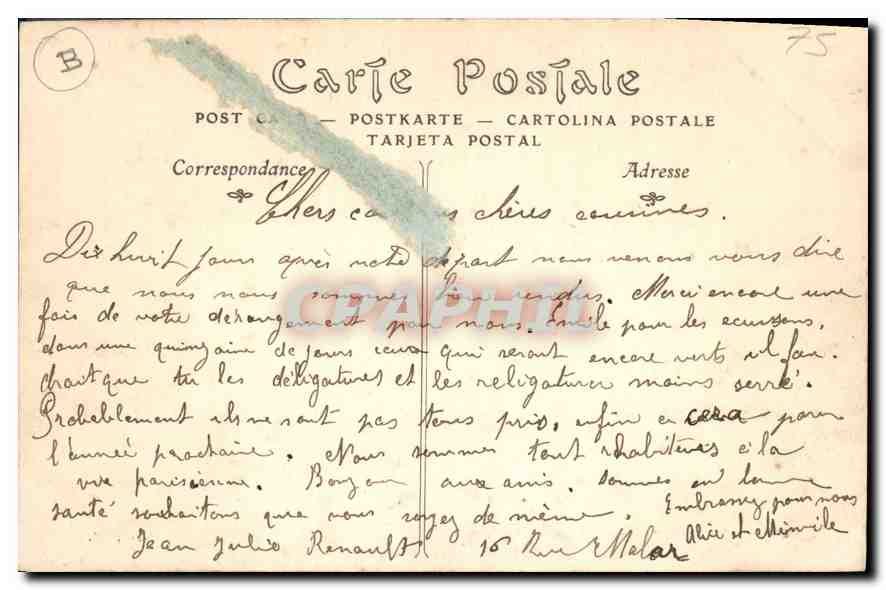 B
75
Carte Postale
POST — POSTKARTE — CARTOLINA POSTALE
TARJETA POSTAL
Correspondance
Adresse
Chers chères cousines.
Dix huit jours après notre départ nous venons vous dire
que nous nous sommes bien rendus. Merci encore une
fois de votre dérangement pour nous. Emile pour les ecussons,
dans une quinzaine de jours ceux qui seront encore verts il fau.
drait que tu les déligatures et les religaturer moins serré.
Probeblement ils ne sont pas tous pris, enfin ce cera pour
l'année prochaine. Nous sommes tout rhabitués à la
vie parisienne. Bonjour aux amis. Sommes en bonne
santé souhaitons que vous soyez de même. Embrassez pour nous
Alice et
Jean Julie Renault 16 Rue Malar
CPAPHIL